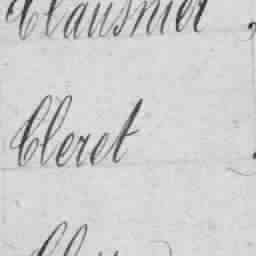 Clausnier
Cleret